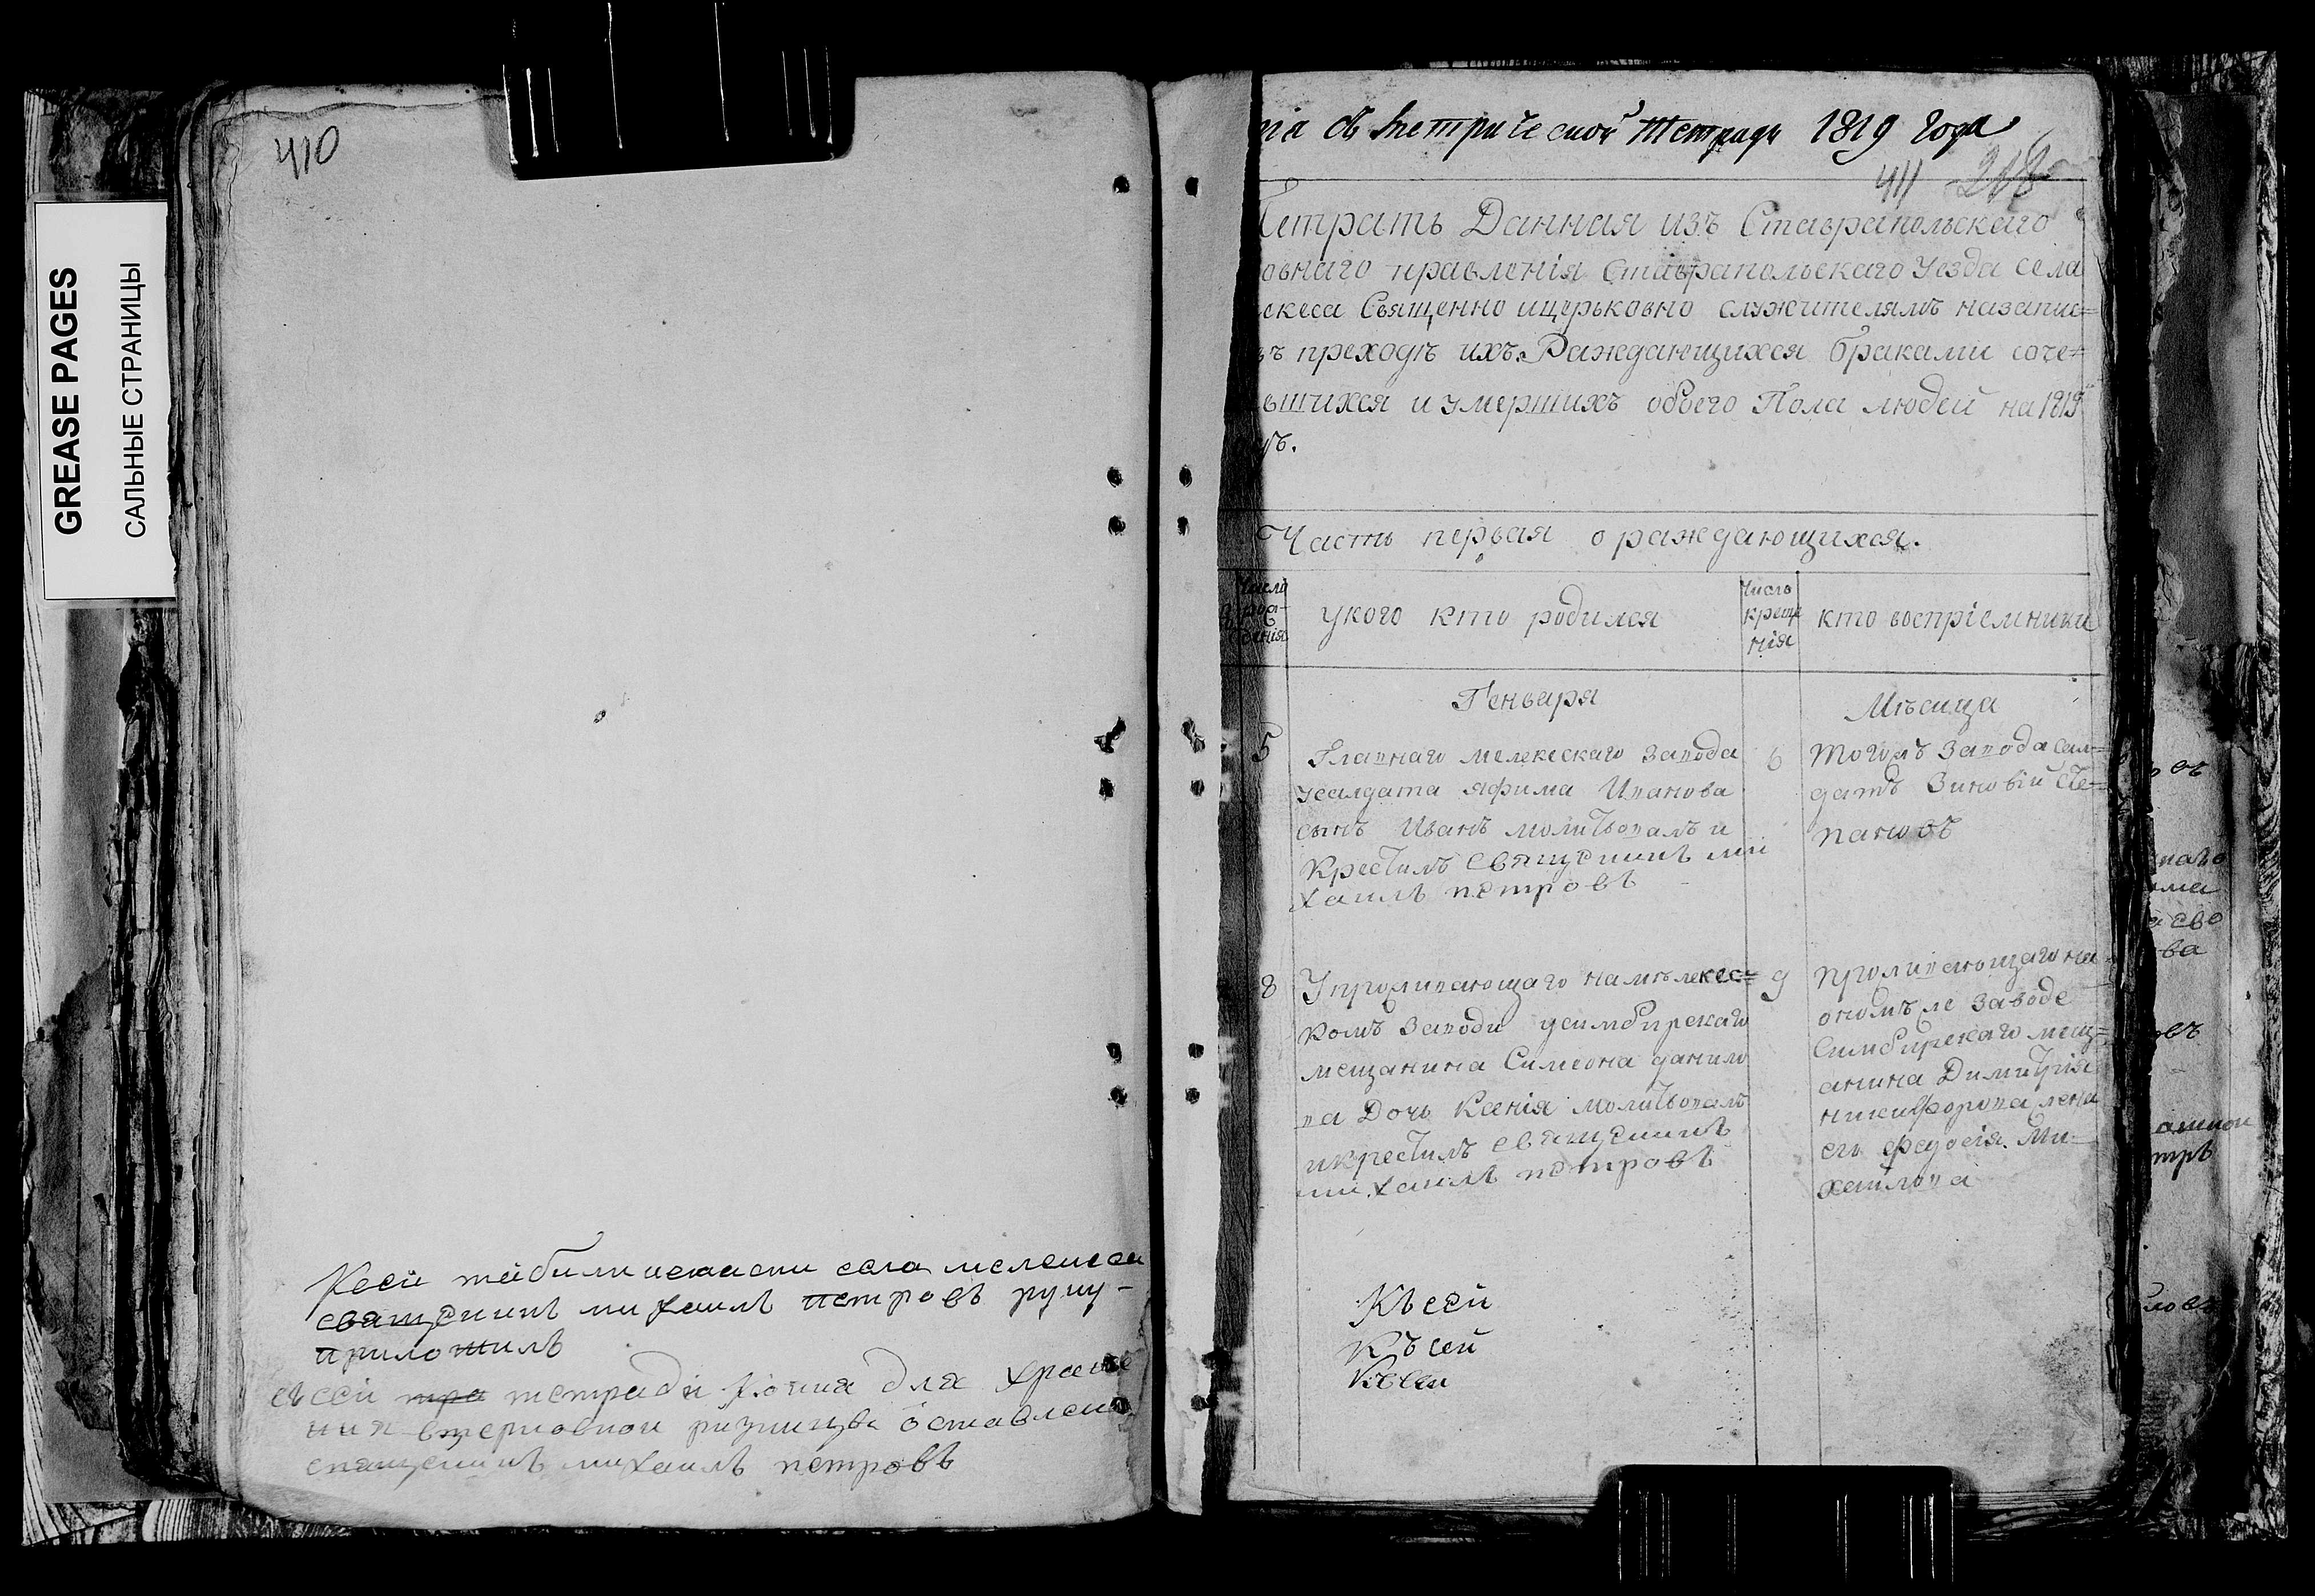 GREASE PAGES
САЛЬНЫЕ СТРАНИЦЫ
410
свящѣнникъ михаилъ петровъ руку-
приложилъ
сѣсей тра тетради копия для хране
ния вцерковной ризницѣ оставлена
священникъ михаилъ петровъ
ніа съ метрической тетради 1819 года
411 218
Тетрать Данная изъ Ставрапольскаго
овнаго правленія Ставрапольскаго уезда села
екеса Священно ицерьковно служителямъ назапис=
въ преходѣ ихъ. Раждающихся браками соче=
вшихся и умершихъ обоего Пола людей на 1819
дъ.
Часть первая о раждающихся.
Число рождения
укого кто родился
Число креще
нія
кто воспріемники
Генваря
Мѣсица
5
Главнаго мелекескаго завода
усалдата яфима Иванова
сынъ Иванъ молитвовалъ и
Крестилъ священникъ ми
хаилъ петровъ
6
Тогожъ Завода сал=
датъ Зиновій Сте=
пановъ
8
Упроживающаго намѣлекес=
комъ Заводи усимбирскаго
мещанина Симеона данило
ва Дочь Ксенія молитвовалъ
икрестилъ священникъ
михаилъ петровъ
9
Проживающаго на
ономъ же заводе
Симбирскаго мещ=
анина Димитрія
никифорова жена
его федосія Ми-
хайлова
Къ сей
Къ сей
Ксеи